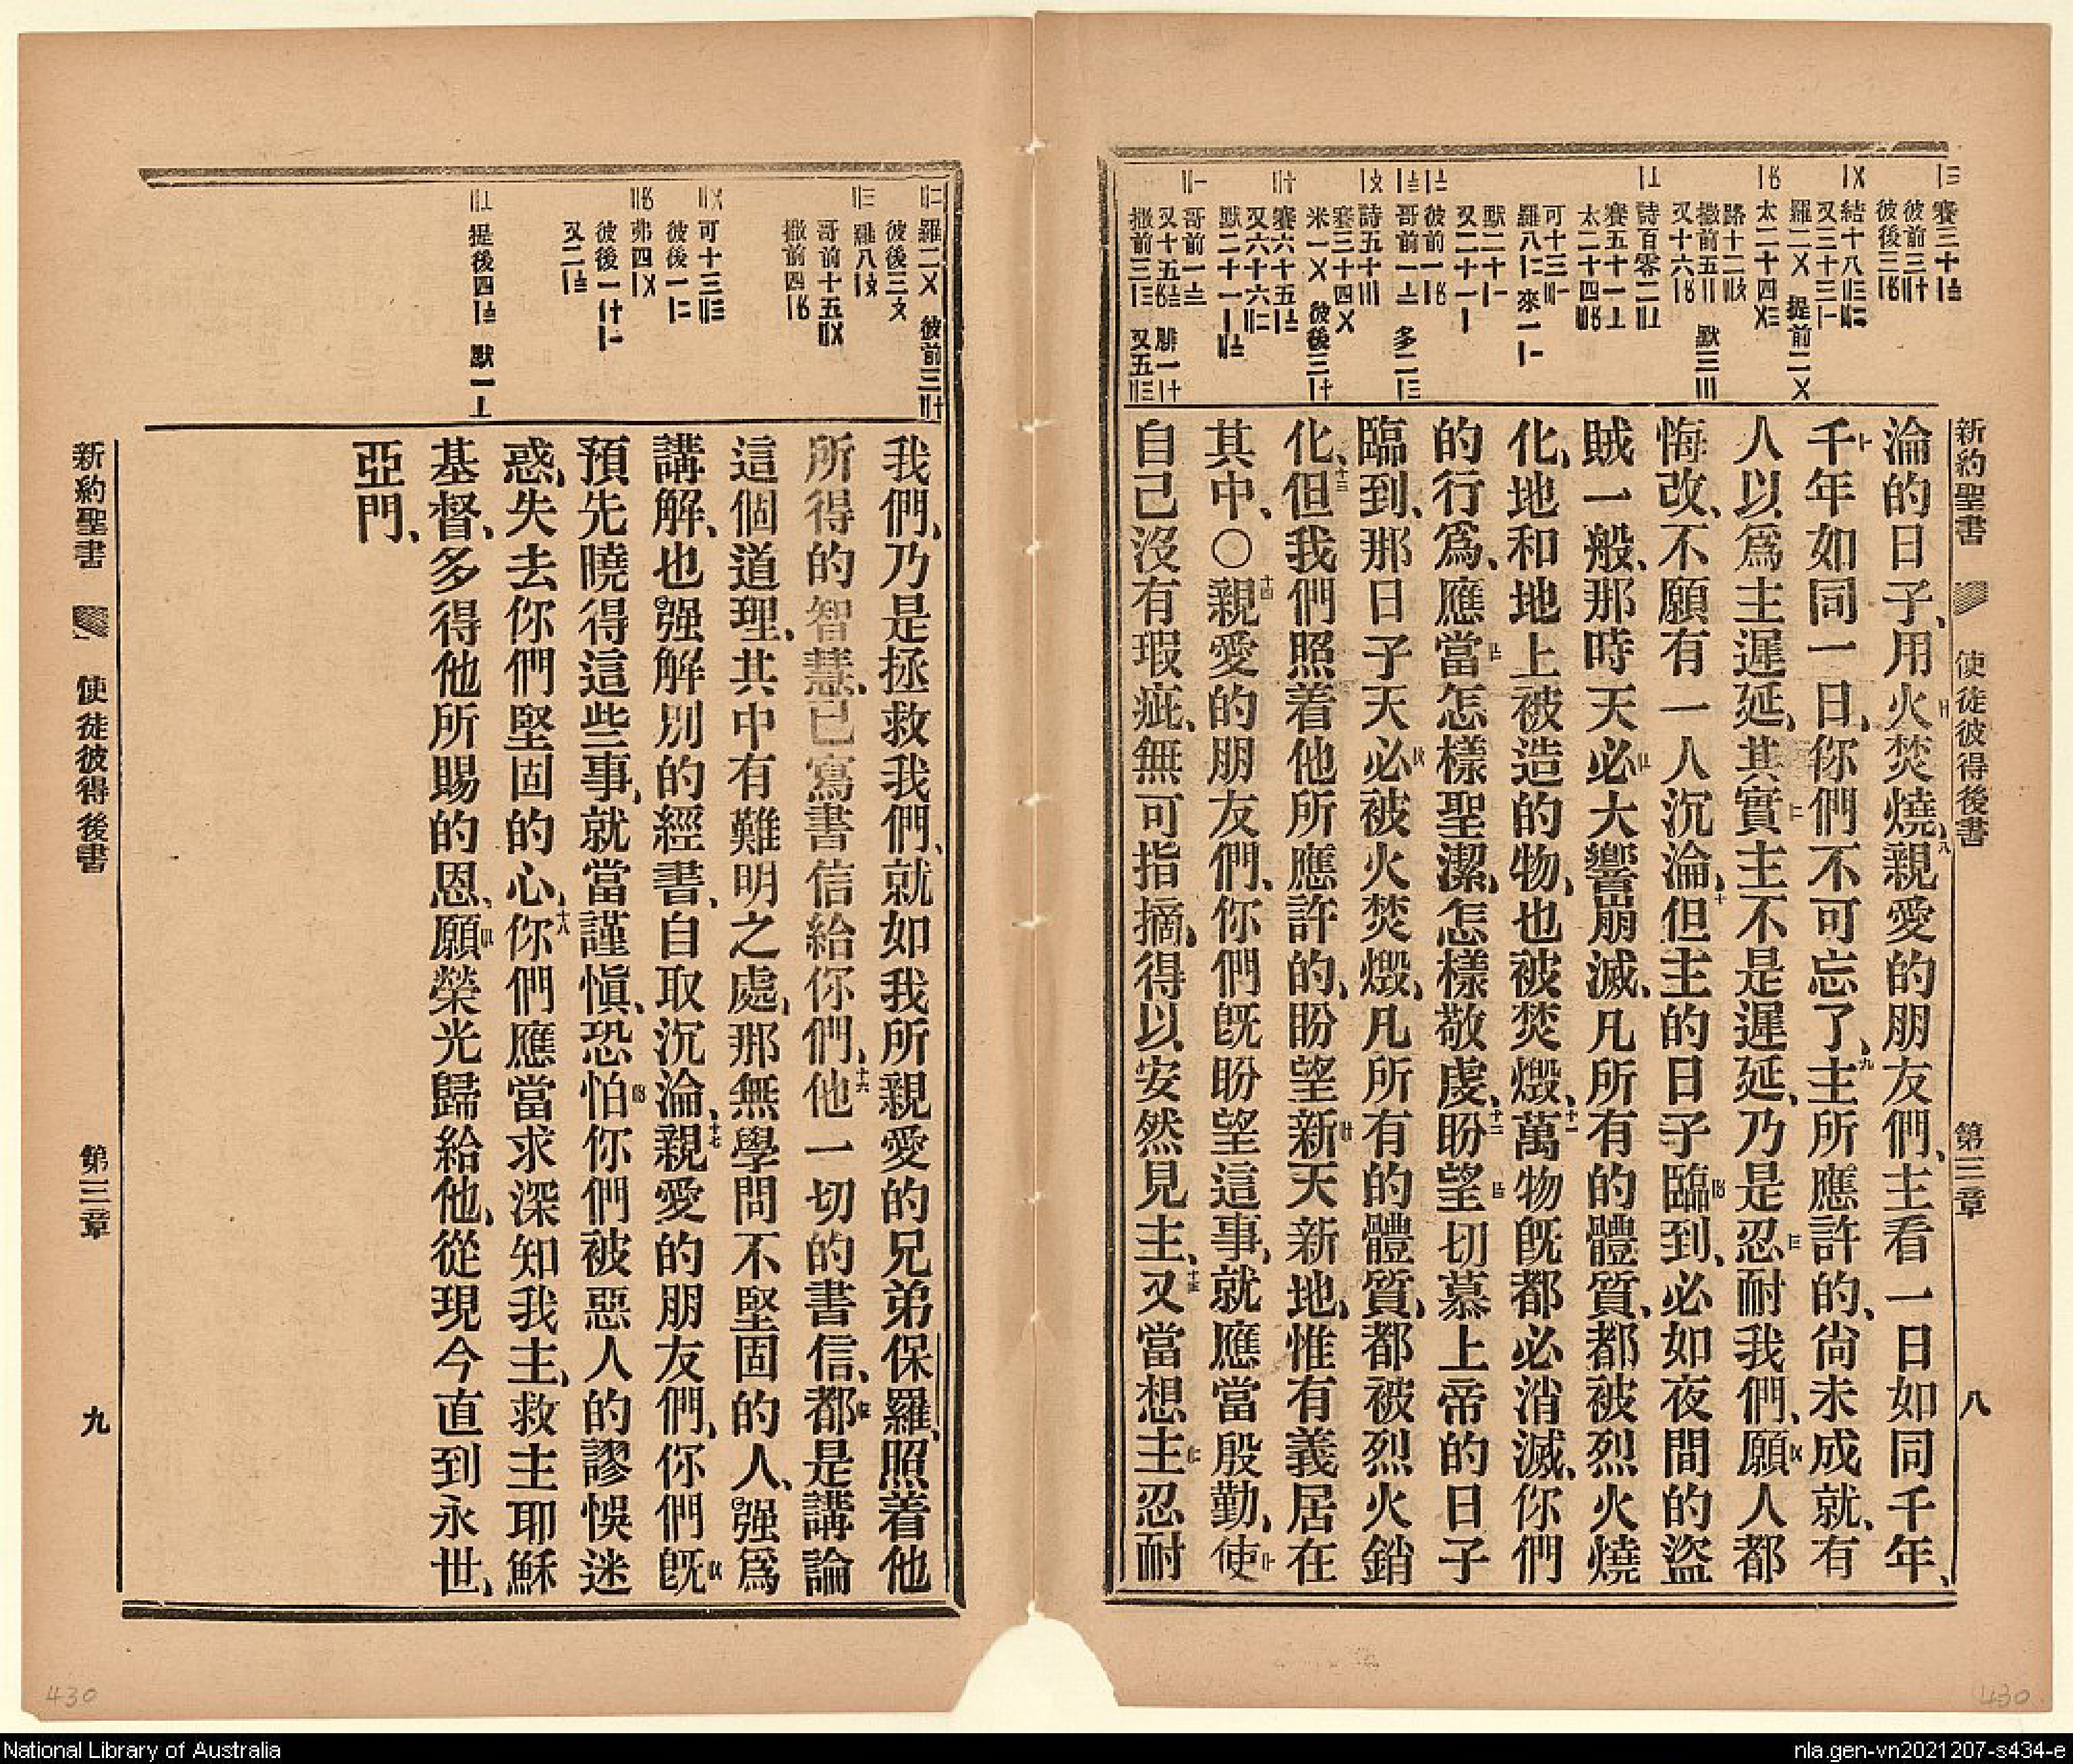 新約聖書 使徒彼得後書 第三章 八
淪的日子、用火焚燒、八親愛的朋友們、主看一日如同千年、
千年如同一日、你們不可忘了、九主所應許的、尙未成就、有
人以爲主遲延、其實主不是遲延、乃是忍耐我們、願人都
悔改、不願有一人沉淪、十但主的日子臨到、必如夜間的盜
賊一般、那時天必大響崩滅、凡所有的體質、都被烈火燒
化、地和地上被造的物、也被焚燬、十一萬物旣都必消滅、你們
的行爲、應當怎樣聖潔、怎樣敬虔、十二盼望切慕上帝的日子
臨到、那日子天必被火焚燬、凡所有的體質、都被烈火銷
化、十三但我們照着他所應許的、盼望新天新地、惟有義居在
其中、〇十四親愛的朋友們、你們旣盼望這事、就應當殷勤、使
自己沒有瑕疵、無可指摘、得以安然見主、十五又當想主忍耐
我們、乃是拯救我們、就如我所親愛的兄弟保羅、照着他
所得的智慧、已寫書信給你們、十六他一切的書信、都是講論
這個道理、其中有難明之處、那無學問不堅固的人、强爲
講解、也强解別的經書、自取沉淪、十七親愛的朋友們、你們旣
預先曉得這些事、就當謹愼、恐怕你們被惡人的謬悞迷
惑、失去你們堅固的心、十八你們應當求深知我主、救主耶穌
基督、多得他所賜的恩、願榮光歸給他、從現今直到永世、
亞門、
新約聖書 使徒彼得後書 第三章 九
430
430
National Library of Australia
nla.gen-vn2021207-s434-e